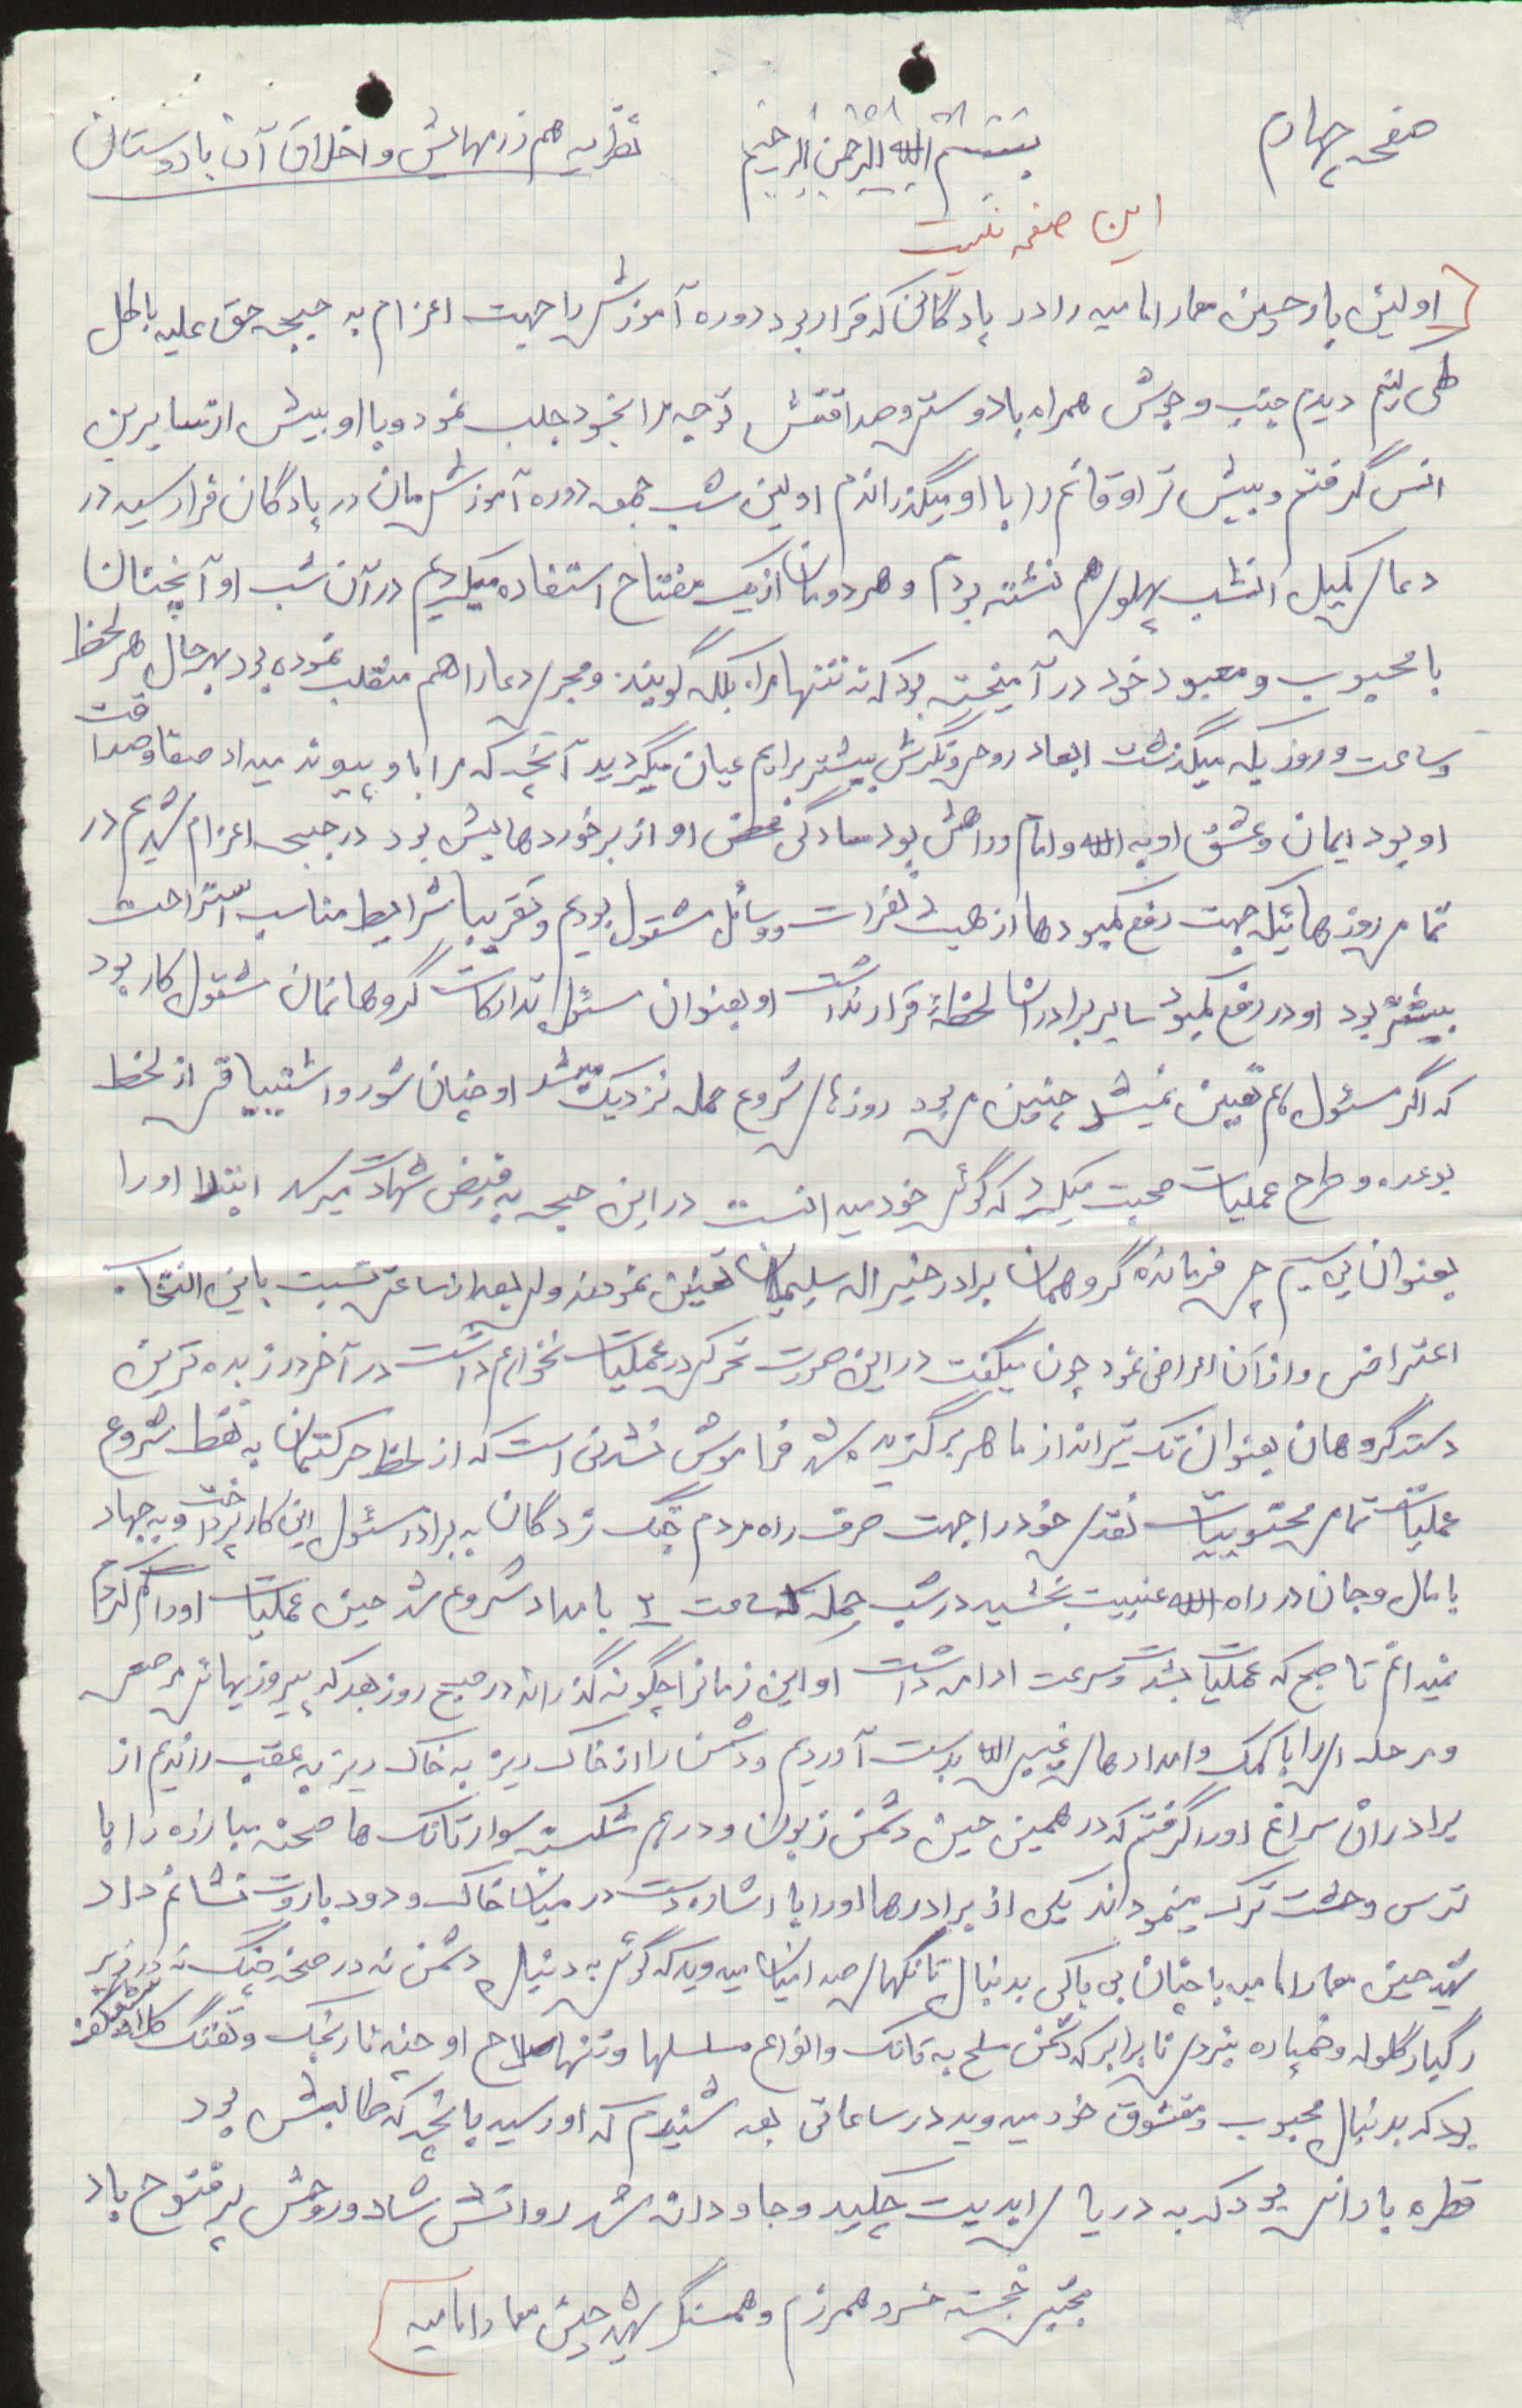 صفحه چهارم
بسم الله الرحمن الرحیم
نظریه هم رزمهایش و اخلاق آن با دوستان
این صفحه نیست
اولین بار حسین معمار امامیه را در پادگانی که قرار بود دوره آموزش را جهت اعزام به جبهه حق علیه باطل
طی کنیم دیدم جنب و جوش همراه با دوستی و صداقتش توجه مرا بخود جلب نمود و با او بیش از سایرین
انس گرفتم و بیش تر اوقاتم را با او میگذراندم اولین شب جمعه دوره آموزشی مان در پادگان فرا رسید در
دعای کمیل آنشب پهلوی هم نشسته بودیم و هر دومان از یک مفتاح استفاده میکردیم در آن شب او آنچنان
با محبوب و معبود خود در آمیخته بود که نه تنها مرا، بلکه گوینده و مجری دعا را هم منقلب نموده بود بهر حال هر لحظه
و ساعت و روزیکه میگذشت ابعاد روحی و نگرش بیشتر برایم عیان میگردید آنچه که مرا با او پیوند میداد صفا و صداقت
او بود ایمان و عشق او به الله و امام و راهش بود سادگی محض او از برخوردهایش بود در جبهه اعزام شدیم در
تمام روزهائیکه جهت رفع کمبودها از حیث نفرات و وسائل مشغول بودیم و تقریبا شرایط مناسب استراحت
بیشتر بود او در رفع کمبود سایر برادران لحظه‌ای قرار نداشت او بعنوان مسئول تدارکات گروهانمان مشغول کار بود
که اگر مسئول هم تعیین نمیشد چنین می بود روزهای شروع حمله نزدیک میشد او چنان شور و اشتیاقی از لحظ
بوعده و طرح عملیات صحبت میکرد که گوئی خود میدانست در این جبهه به فیض شهادت میرسد ابتدا او را
بعنوان بی سیم چی فرمانده گروهمان برادر خیراله سلیمان تعیین نمودند ولی بعد از ساعتی نسبت باین انتخاب
اعتراض و از آن اعراض نمود چون میگفت در این صورت تحرک در عملیات نخواهم داشت در آخر در زبده ترین
دسته گروهان بعنوان تک تیرانداز ماهر برگزیده شد فراموش نشدنی است که از لحظ حرکتمان به نقط شروع
عملیات تمام محتویات نقدی خود را جهت صرف راه مردم جنگ زدگان به برادر مسئول این کار پرداخت و به جهاد
با مال و جان در راه الله عینیت بخشید در شب حمله که ساعت ۳ بامداد شروع شد حین عملیات او را گم کردم
نمیدانم تا صبح که عملیات بشدت و سرعت ادامه داشت او این زمانرا چگونه گذراند در صبح روز بعد که پیروزیهای مرحله
و مرحله ای را با کمک و امدادهای غیبی الله بدست آوردیم و دشمن را از خاک ریز به خاک ریز به عقب راندیم از
برادران سراغ او را گرفتم که در همین حین دشمن زبون و در هم شکسته سوار تانک ها صحنه مبارزه را با
ترس و وحشت ترک مینمودند یکی از برادرها او را با اشاره دست در میان خاک و دود باروت نشانم داد
شهید حسین معمار امامیه با چنان بی باکی بدنبال تانکهای صدامیان میدوید که گوئی به دنبال دشمن نه در صحنه جنگ نه در زیر
رگبار گلوله و خمپاره نبردی نا برابر که دشمن مسلح به تانک و انواع مسلسلها و تنها سلاح او چند نارنجک و تفنگ کلاشینکف
بود که بدنبال محبوب و معشوق خود میدوید در ساعاتی بعد شنیدم که او رسید بآنچه که طالبش بود
قطره بارانی بود که به دریای ابدیت چکید و جاودانه شد روانش شاد و روحش پر فتوح باد
مجتبی خجسته خسرو همرزم و همسنگر شهید حسین معمار امامیه